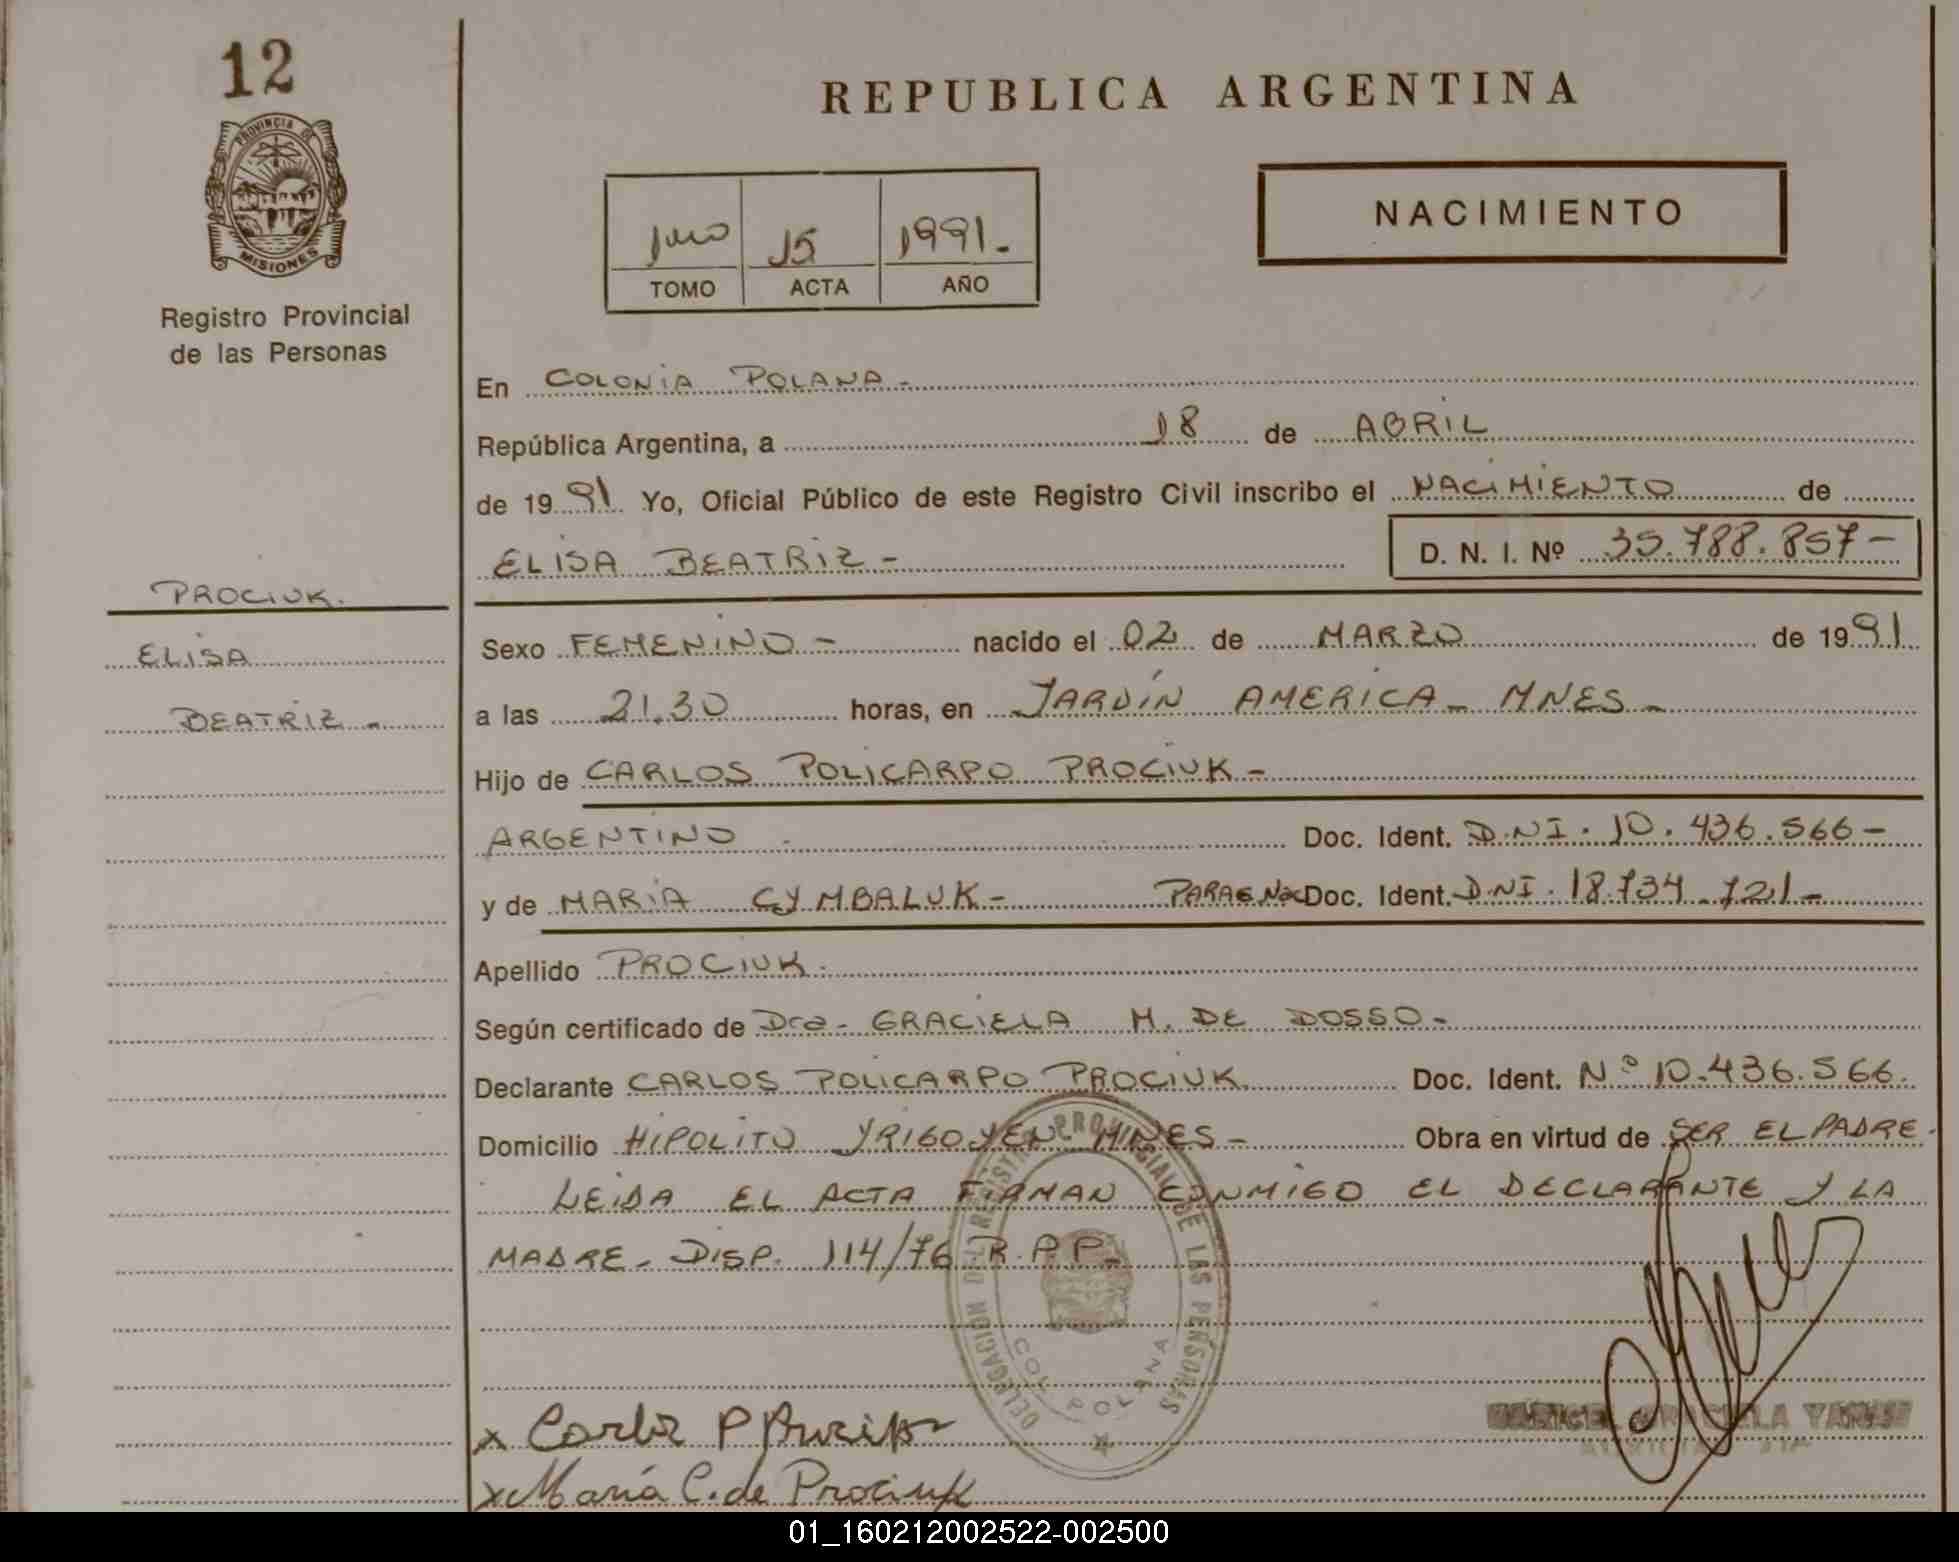 12
PROVINCIA DE
MISIONES
Registro Provincial
de las Personas
PROCIUK.
ELISA
BEATRIZ -
REPUBLICA ARGENTINA
15 1991.-
TOMO ACTA AÑO
NACIMIENTO
En COLONIA POLANA -
República Argentina, a 18 de ABRIL
de 1991 Yo, Oficial Público de este Registro Civil inscribo el NACIMIENTO de
ELISA BEATRIZ - D. N. I. Nº 35.788.857-
Sexo FEMENINO - nacido el 02 de MARZO de 1991
a las 21.30 horas, en JARDÍN AMERICA - MNES -
Hijo de CARLOS POLICARPO PROCIUK -
ARGENTINO Doc. Ident. D.NI. 10.436.566-
y de MARIA CYMBALUK - Doc. Ident. D.NI. 18.734.721-
Apellido PROCIUK.
Según certificado de Dra. GRACIELA M. DE DOSSO -
Declarante CARLOS POLICARPO PROCIUK Doc. Ident. Nº 10.436.566.
Domicilio HIPOLITO YRIGOYEN MNES - Obra en virtud de SER EL PADRE.
LEIDA EL ACTA FIRMAN CONMIGO EL DECLARANTE Y LA
MADRE - DISP. 114/76 R.P.P.
DELEGACION DEL REGISTRO PROVINCIAL DE LAS PERSONAS
COL. POLANA
GRACIELA
x Carlos P
x María C. de Prociuk
01_160212002522-002500